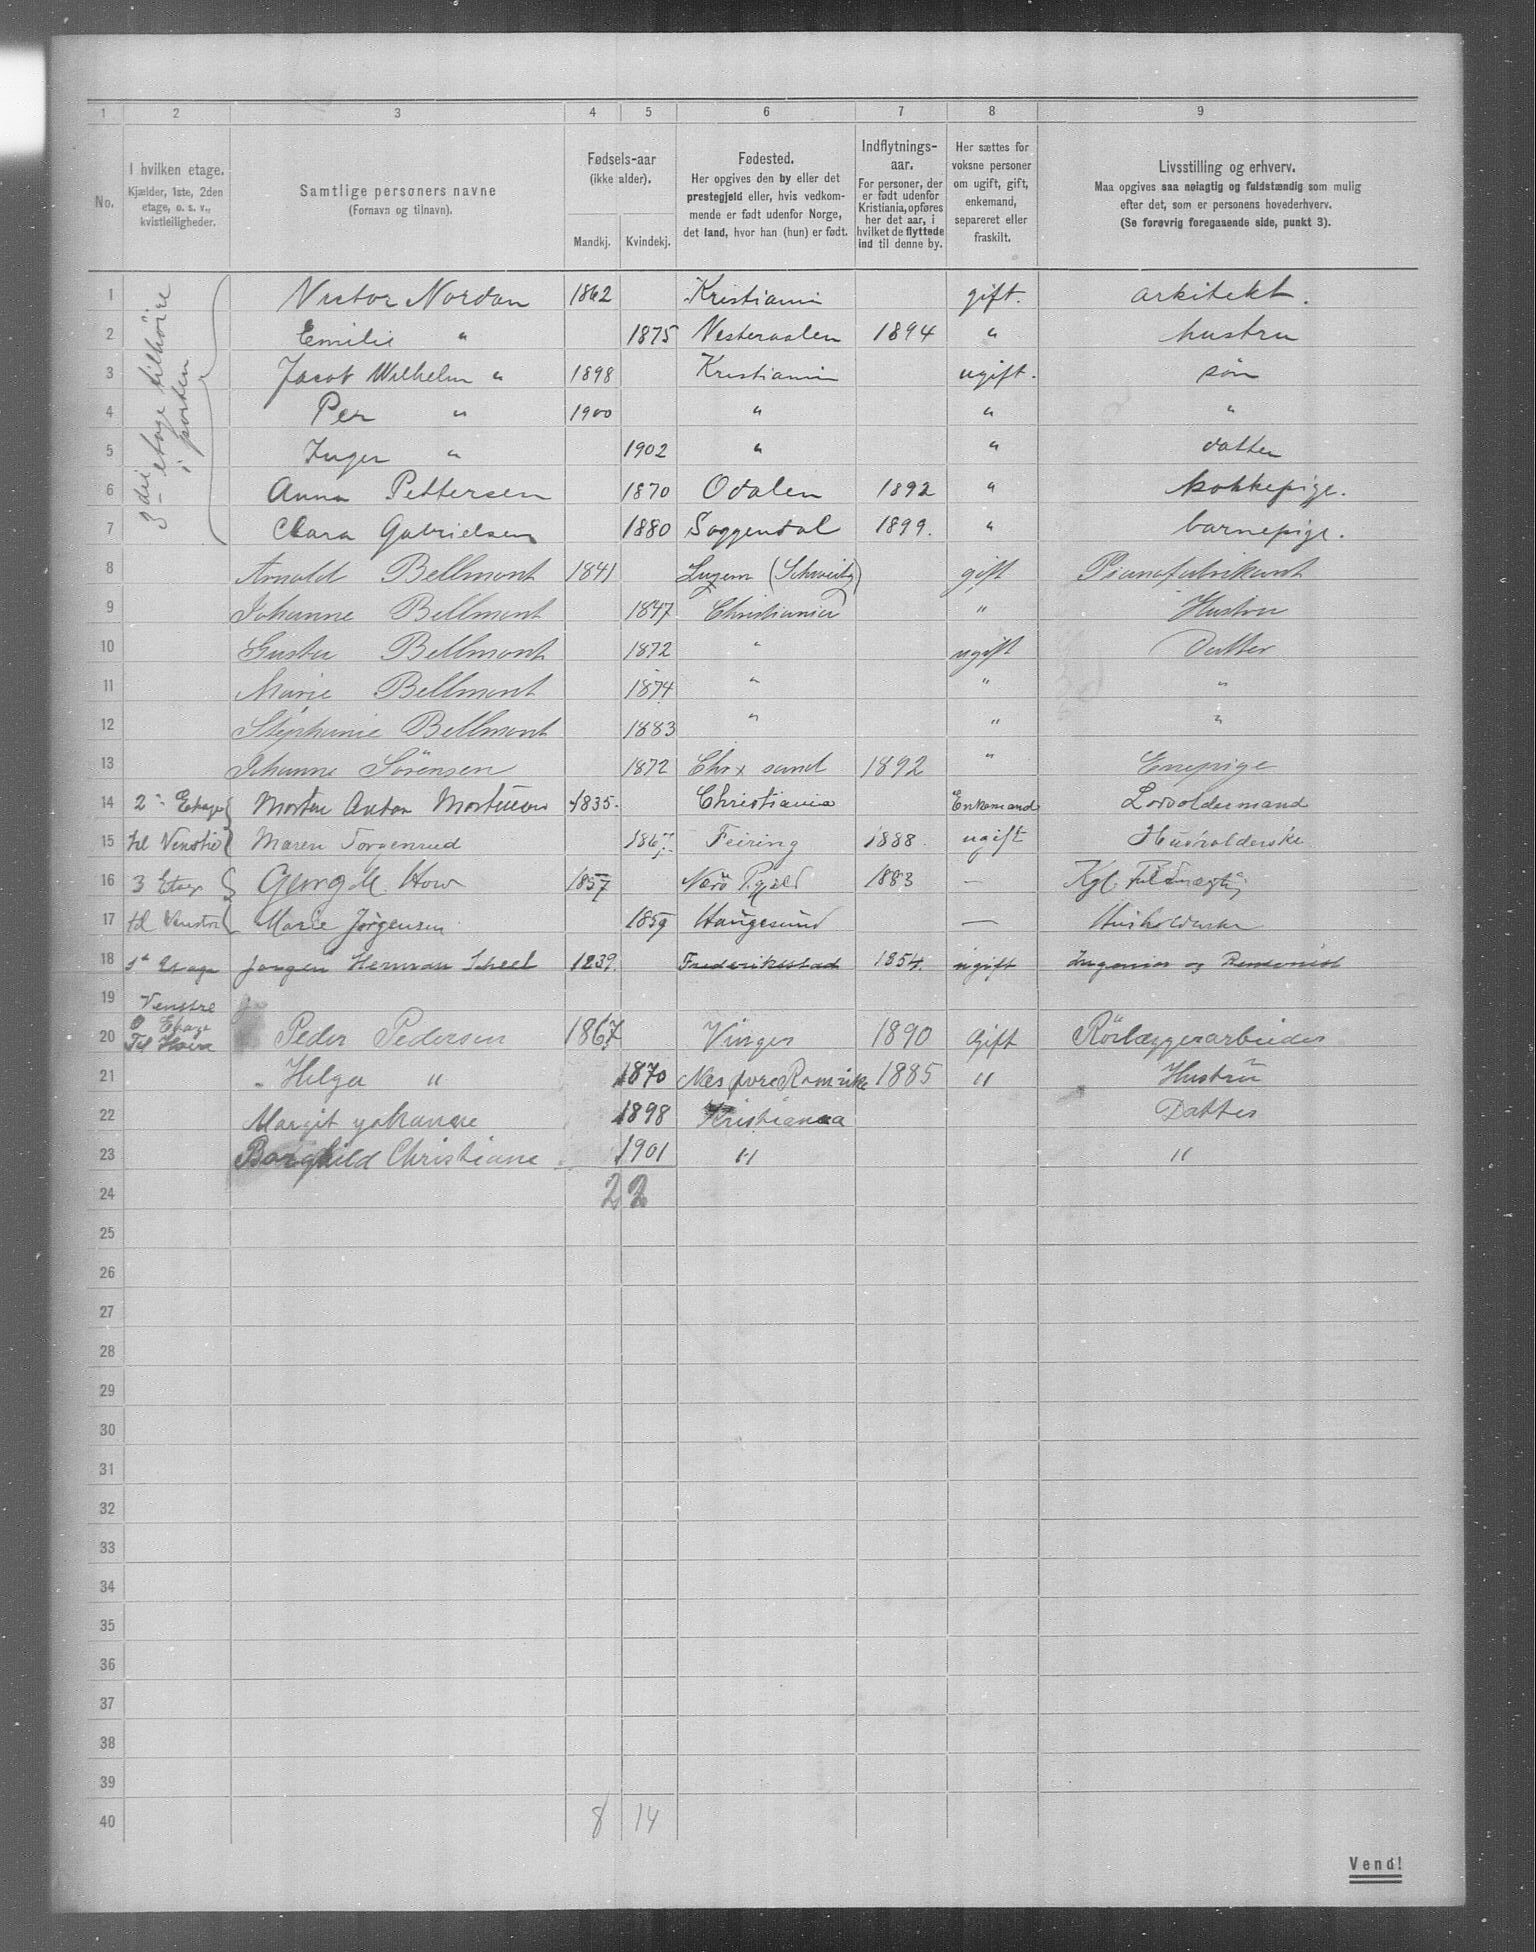 1 2 3 4 5 6 7 8 9
No.
I hvilken etage.
Kjælder, 1ste, 2den
etage, o. s. v.,
kvistleiligheder.
Samtlige personers navne
(Fornavn og tilnavn).
Fødsels-aar
(ikke alder).
Mandkj. Kvindekj.
Fødested.
Her opgives den by eller det
prestegjeld eller, hvis vedkom-
mende er født udenfor Norge,
det land, hvor han (hun) er født.
Indflytnings-
aar.
For personer, der
er født udenfor
Kristiania, opføres
her det aar, i
hvilket de flyttede
ind til denne by.
Her sættes for
voksne personer
om ugift, gift,
enkemand,
separeret eller
fraskilt.
Livsstilling og erhverv.
Maa opgives saa nøiagtig og fuldstændig som mulig
efter det, som er personens hovederhverv.
(Se forøvrig foregaaende side, punkt 3).
3die etage tilhøire
i porten
1 Victor Nordan 1862 Kristiania gift. arkitekt.
2 Emilie " 1875 Vesteraalen 1894 " hustru
3 Jacob Wilhelm " 1898 Kristiania ugift. søn
4 Per " 1900 " " "
5 Inger " 1902 " " datter
6 Anna Pettersen 1870 Odalen 1892 " kokkepige.
7 Clara Gabrielsen 1880 Soggendal 1899. " barnepige.
8 Arnold Bellmont 1841 Luzern (Schweitz) gift Pianofabrikant
9 Johanne Bellmont 1847 Christiania " Hustru
10 Gusta Bellmont 1872 " ugift Datter
11 Marie Bellmont 1874 " " "
12 Stephanie Bellmont 1883 " " "
13 Johanne Sørensen 1872 Chr. sand 1892 " Enepige
14 2. Etage Morten Anton Mortensen 1835. Christiania Enkemand
15 til Venstre Maren Torgenrud 1867. Feiring 1888. ugift Husholderske
16 3 Etage Georg M. How 1857 Nærø 1883 — Kgl. Fuldmægtig
17 til Venstre Marie Jørgensen 1859 Haugesund — Husholderske
18 1ste Etage Jørgen Herman Scheel 1839. Frederiksstad 1854. ugift Ingeniør og
19 Venstre
20 O Etage
Til Høire Peder Pedersen 1867 Vinger 1890 Gift Rörlæggerarbeider
21 " Helga " 1870 Nes øvre Romerike 1885 " Hustru
22 Margit Johanne 1898 Kristiania Datter
23 Borghild Christiane 1901 " "
24 22
25
26
27
28
29
30
31
32
33
34
35
36
37
38
39
40 8 14
Vend!